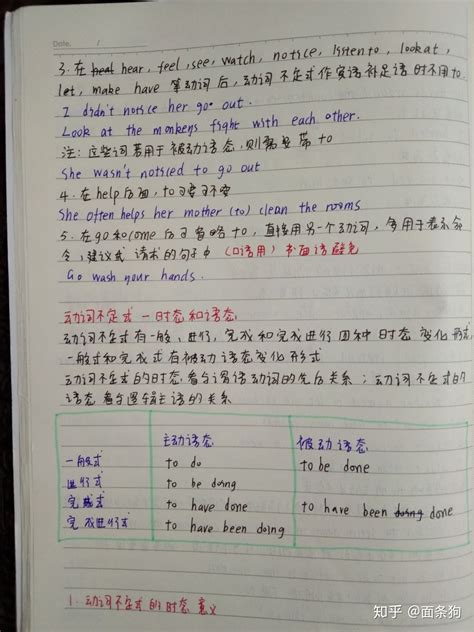 Date. /
3. 在 hear, feel, see, watch, notice, listen to, look at,
let, make have 等动词后，动词不定式作宾语补足语时不用to.
I didn't notice her go out.
Look at the monkeys fight with each other.
注：这些词若用于被动语态，则需要带to
She wasn't noticed to go out
4. 在help后面，to可要可不要
She often helps her mother (to) clean the rooms
5. 在go和come后可省略to，直接用另一个动词，常用于表示命
令，建议或请求的句子中（口语用）书面语避免
Go wash your hands.
动词不定式一时态和语态
动词不定式有一般、进行，完成和完成进行四种时态变化形式
一般式和完成式有被动语态变化形式
动词不定式的时态看与谓语动词的先后关系；动词不定式的
语态看与逻辑主语的关系
主动语态 被动语态
一般式 to do to be done
进行式 to be doing
完成式 to have done to have been doing done
完成进行式 to have been doing
1. 动词不定式的时态意义
知乎 @面条狗